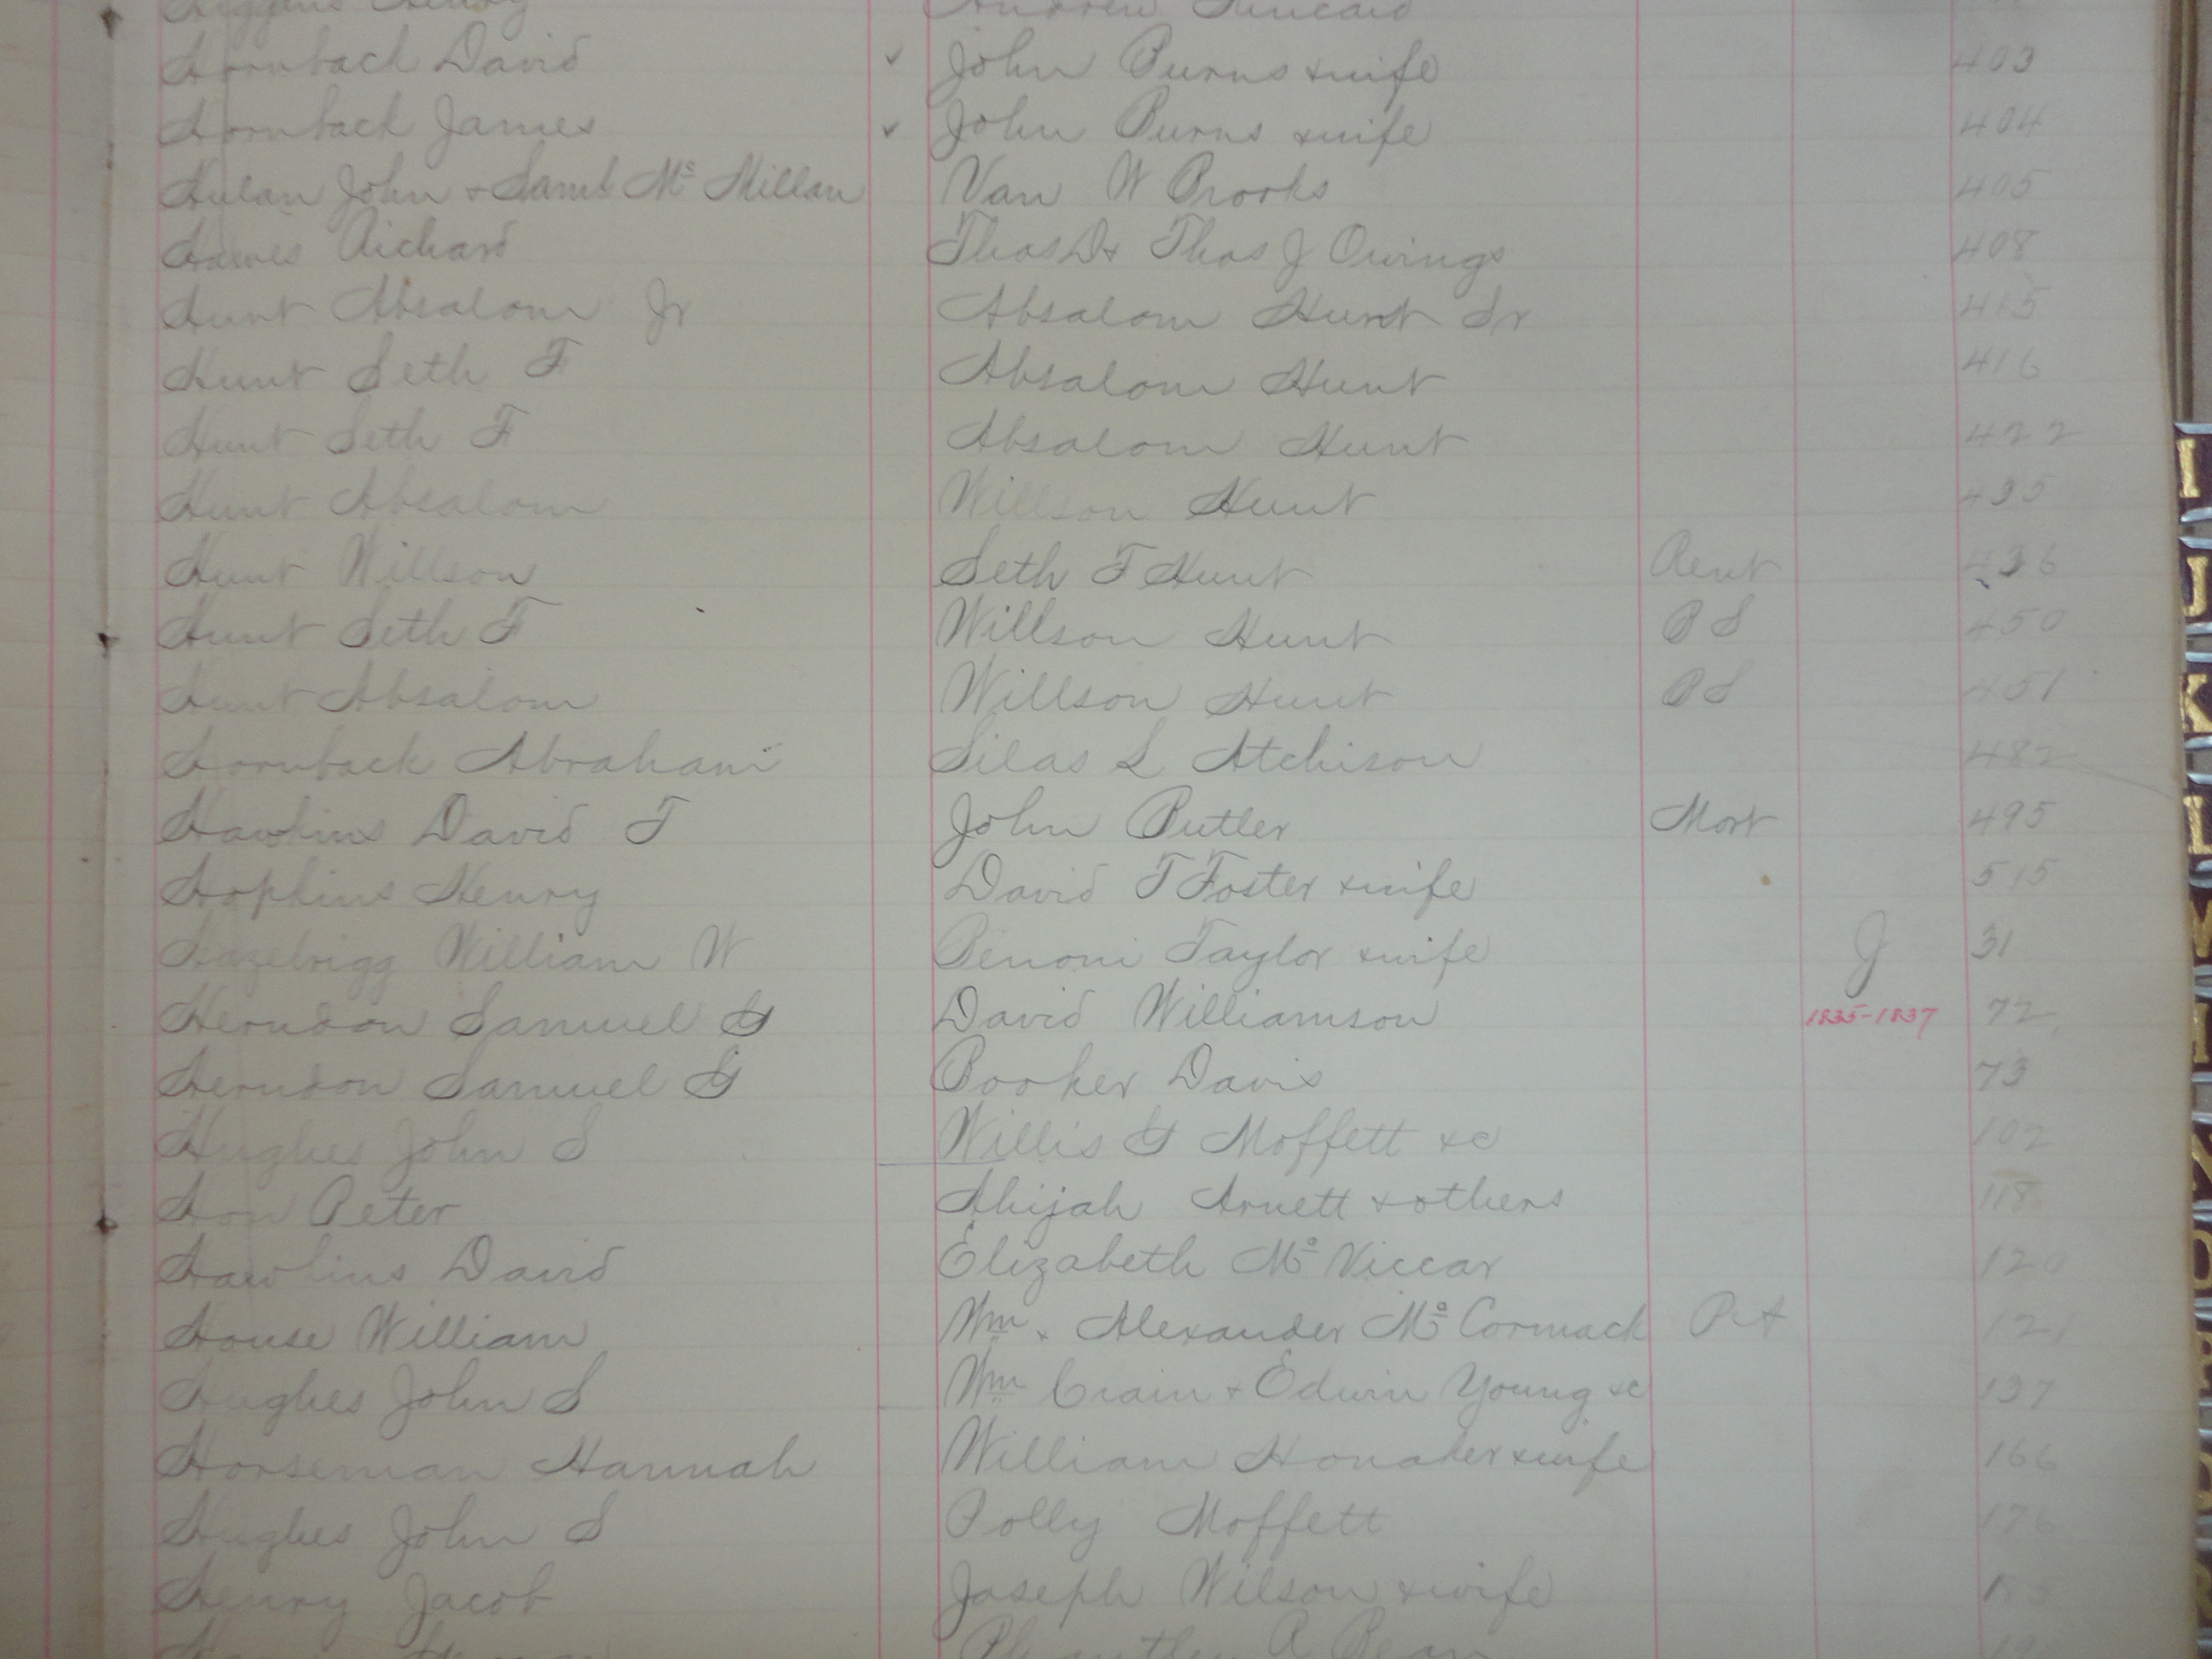 Hornback David ✓ John Burns & wife 403
Hornback James ✓ John Burns & wife 404
Hulan John & Saml Mc Millan Van W Brooks 405
Hawes Richard Thos D & Thos J Owings 408
Hunt Absalom Jr Absalom Hunt Sr 415
Hunt Seth F Absalom Hunt 416
Hunt Seth F Absalom Hunt 422
Hunt Absalom Willson Hunt 435
Hunt Willson Seth F Hunt Rent 436
Hunt Seth F Willson Hunt BS 450
Hunt Absalom Willson Hunt BS 451
Hornback Abraham Silas L Atchison 482
Hawkins David T John Butler Mort 495
Hopkins Henry David T Foster & wife 515
Hazelrigg William W Benoni Taylor & wife J 31
Herndon Samuel G David Williamson 1835-1837 72
Herndon Samuel G Booker Davis 73
Hughes John S Willis G Moffett &c 102
Hon Peter Abijah Arnett & others 118
Hawkins David Elizabeth Mc Viccar 120
House William Wm & Alexander Mc Cormack 121
Hughes John S Wm Crain & Edwin Young &c 137
Horseman Hannah William Honaker & wife 166
Hughes John S Polly Moffett 176
Henry Jacob Joseph Wilson & wife
I
J
K
L